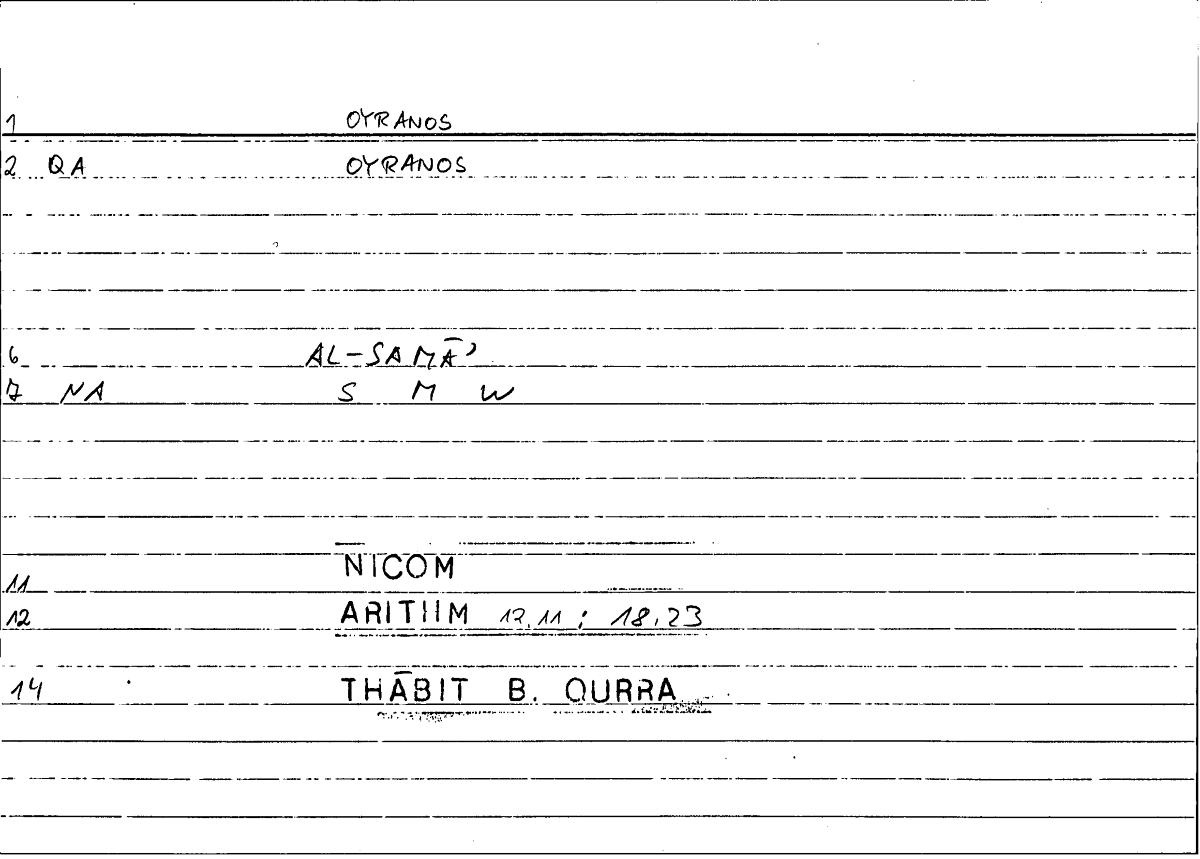 1 OYRANOS
2 QA OYRANOS
6 AL-SAMĀʾ
7 NA S M W
11 NICOM
12 ARITHM 12.11 ; 18.23
14 THĀBIT B. QURRA